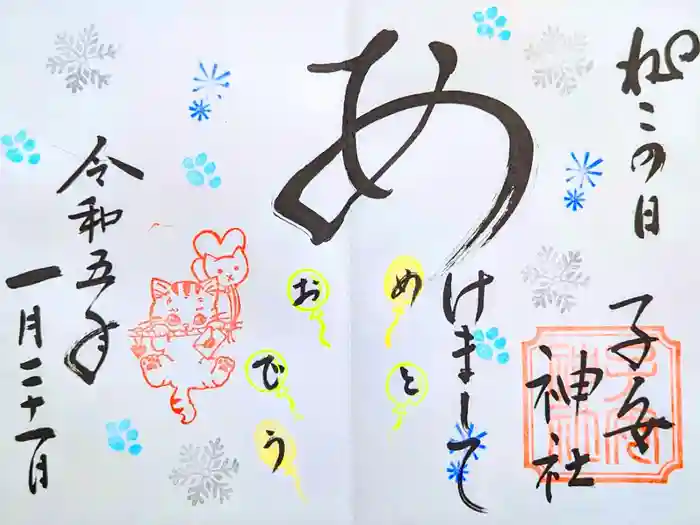 ねこの日
子安神社
あけまして
おめでとう
令和五年
一月二十一日